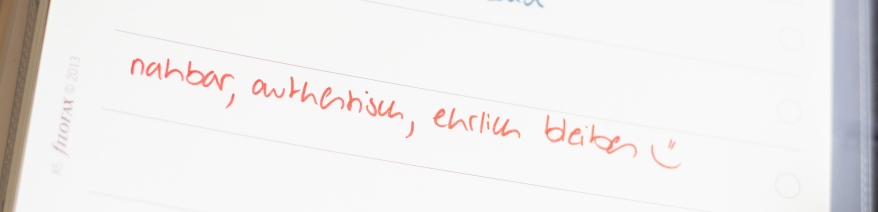 nahbar, authentisch, ehrlich bleiben ü
A5 filofax © 2013